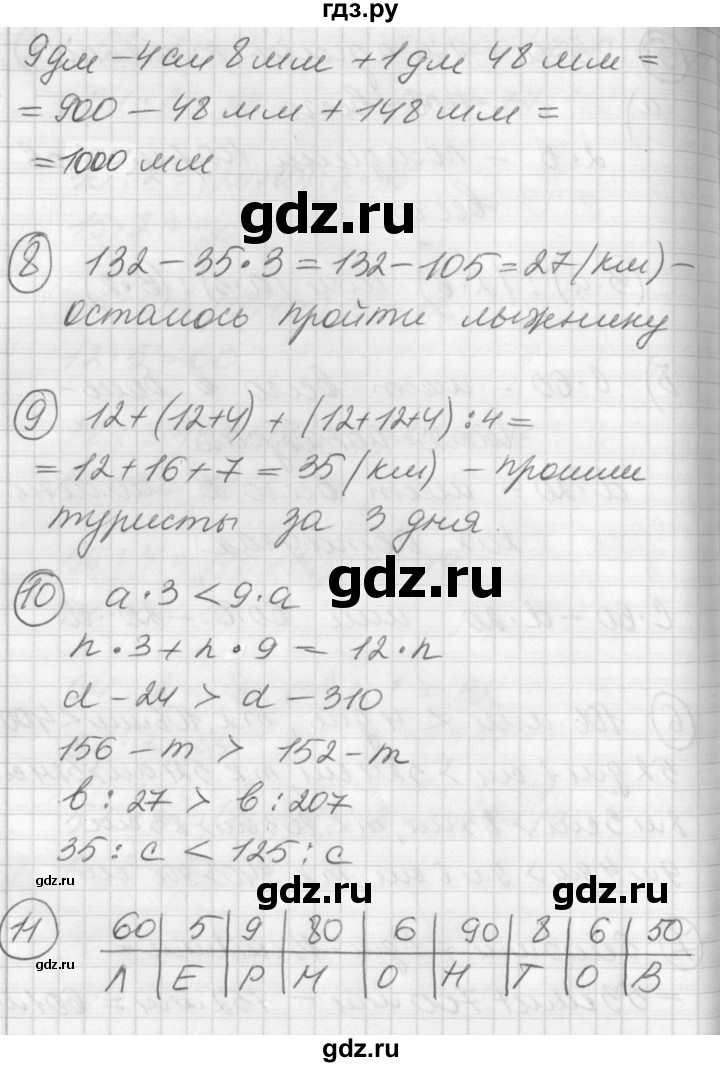 гдз.ру
9дм – 4см 8мм + 1дм 48мм =
= 900 – 48 мм + 148 мм =
= 1000 мм
gdz.ru
8 132 – 35 · 3 = 132 – 105 = 27 (км) –
осталось пройти лыжнику
9 12 + (12+4) + (12+12+4) : 4 =
= 12 + 16 + 7 = 35 (км) – прошли
туристы за 3 дня.
gdz.ru
10 a · 3 < 9 · a
n · 3 + n · 9 = 12 · n
d – 24 > d – 310
156 – m > 152 – m
в : 27 > в : 207
35 : c < 125 : c
gdz.ru
gdz.ru gdz.ru
11 60 | 5 | 9 | 80 | 6 | 90 | 8 | 6 | 50
Л | Е | Р | М | О | Н | Т | О | В
gdz.ru
gdz.ru
gdz.ru